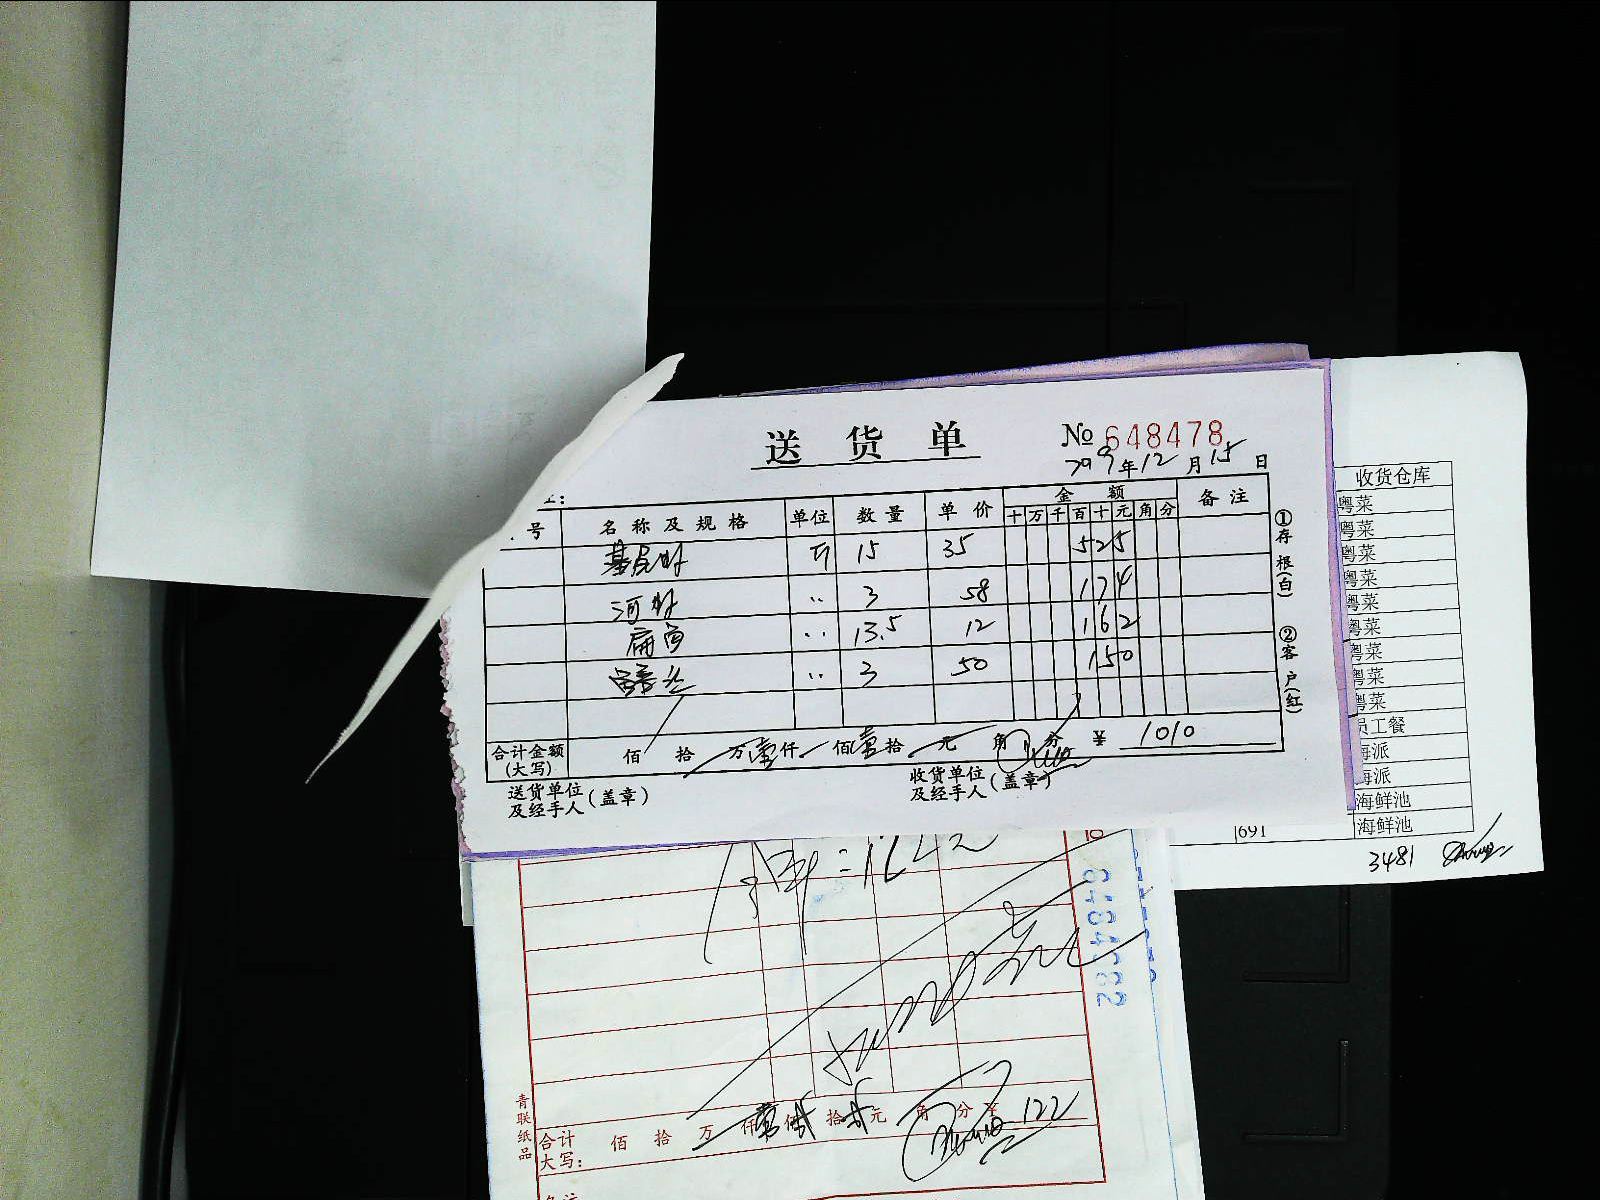 送货单
No 648478
2019年12月15日
号 名称及规格 单位 数量 单价 金额 备注
十万千百十元角分
基尾虾 斤 15 35 525
河虾 〃 3 58 174
扁鱼 〃 13.5 12 162
〃 3 50 150
合计金额(大写) 佰 拾 万壹仟 佰壹拾 元 角 分 ¥ 1010
送货单位及经手人(盖章)
收货单位及经手人(盖章)
①存根(白) ②客户(红)
收货仓库
粤菜
粤菜
粤菜
粤菜
粤菜
粤菜
粤菜
粤菜
粤菜
员工餐
海派
海派
海鲜池
691 海鲜池
3481
青联纸品
合计大写: 佰 拾 万 仟 佰 拾 元 角 分 ¥ 122